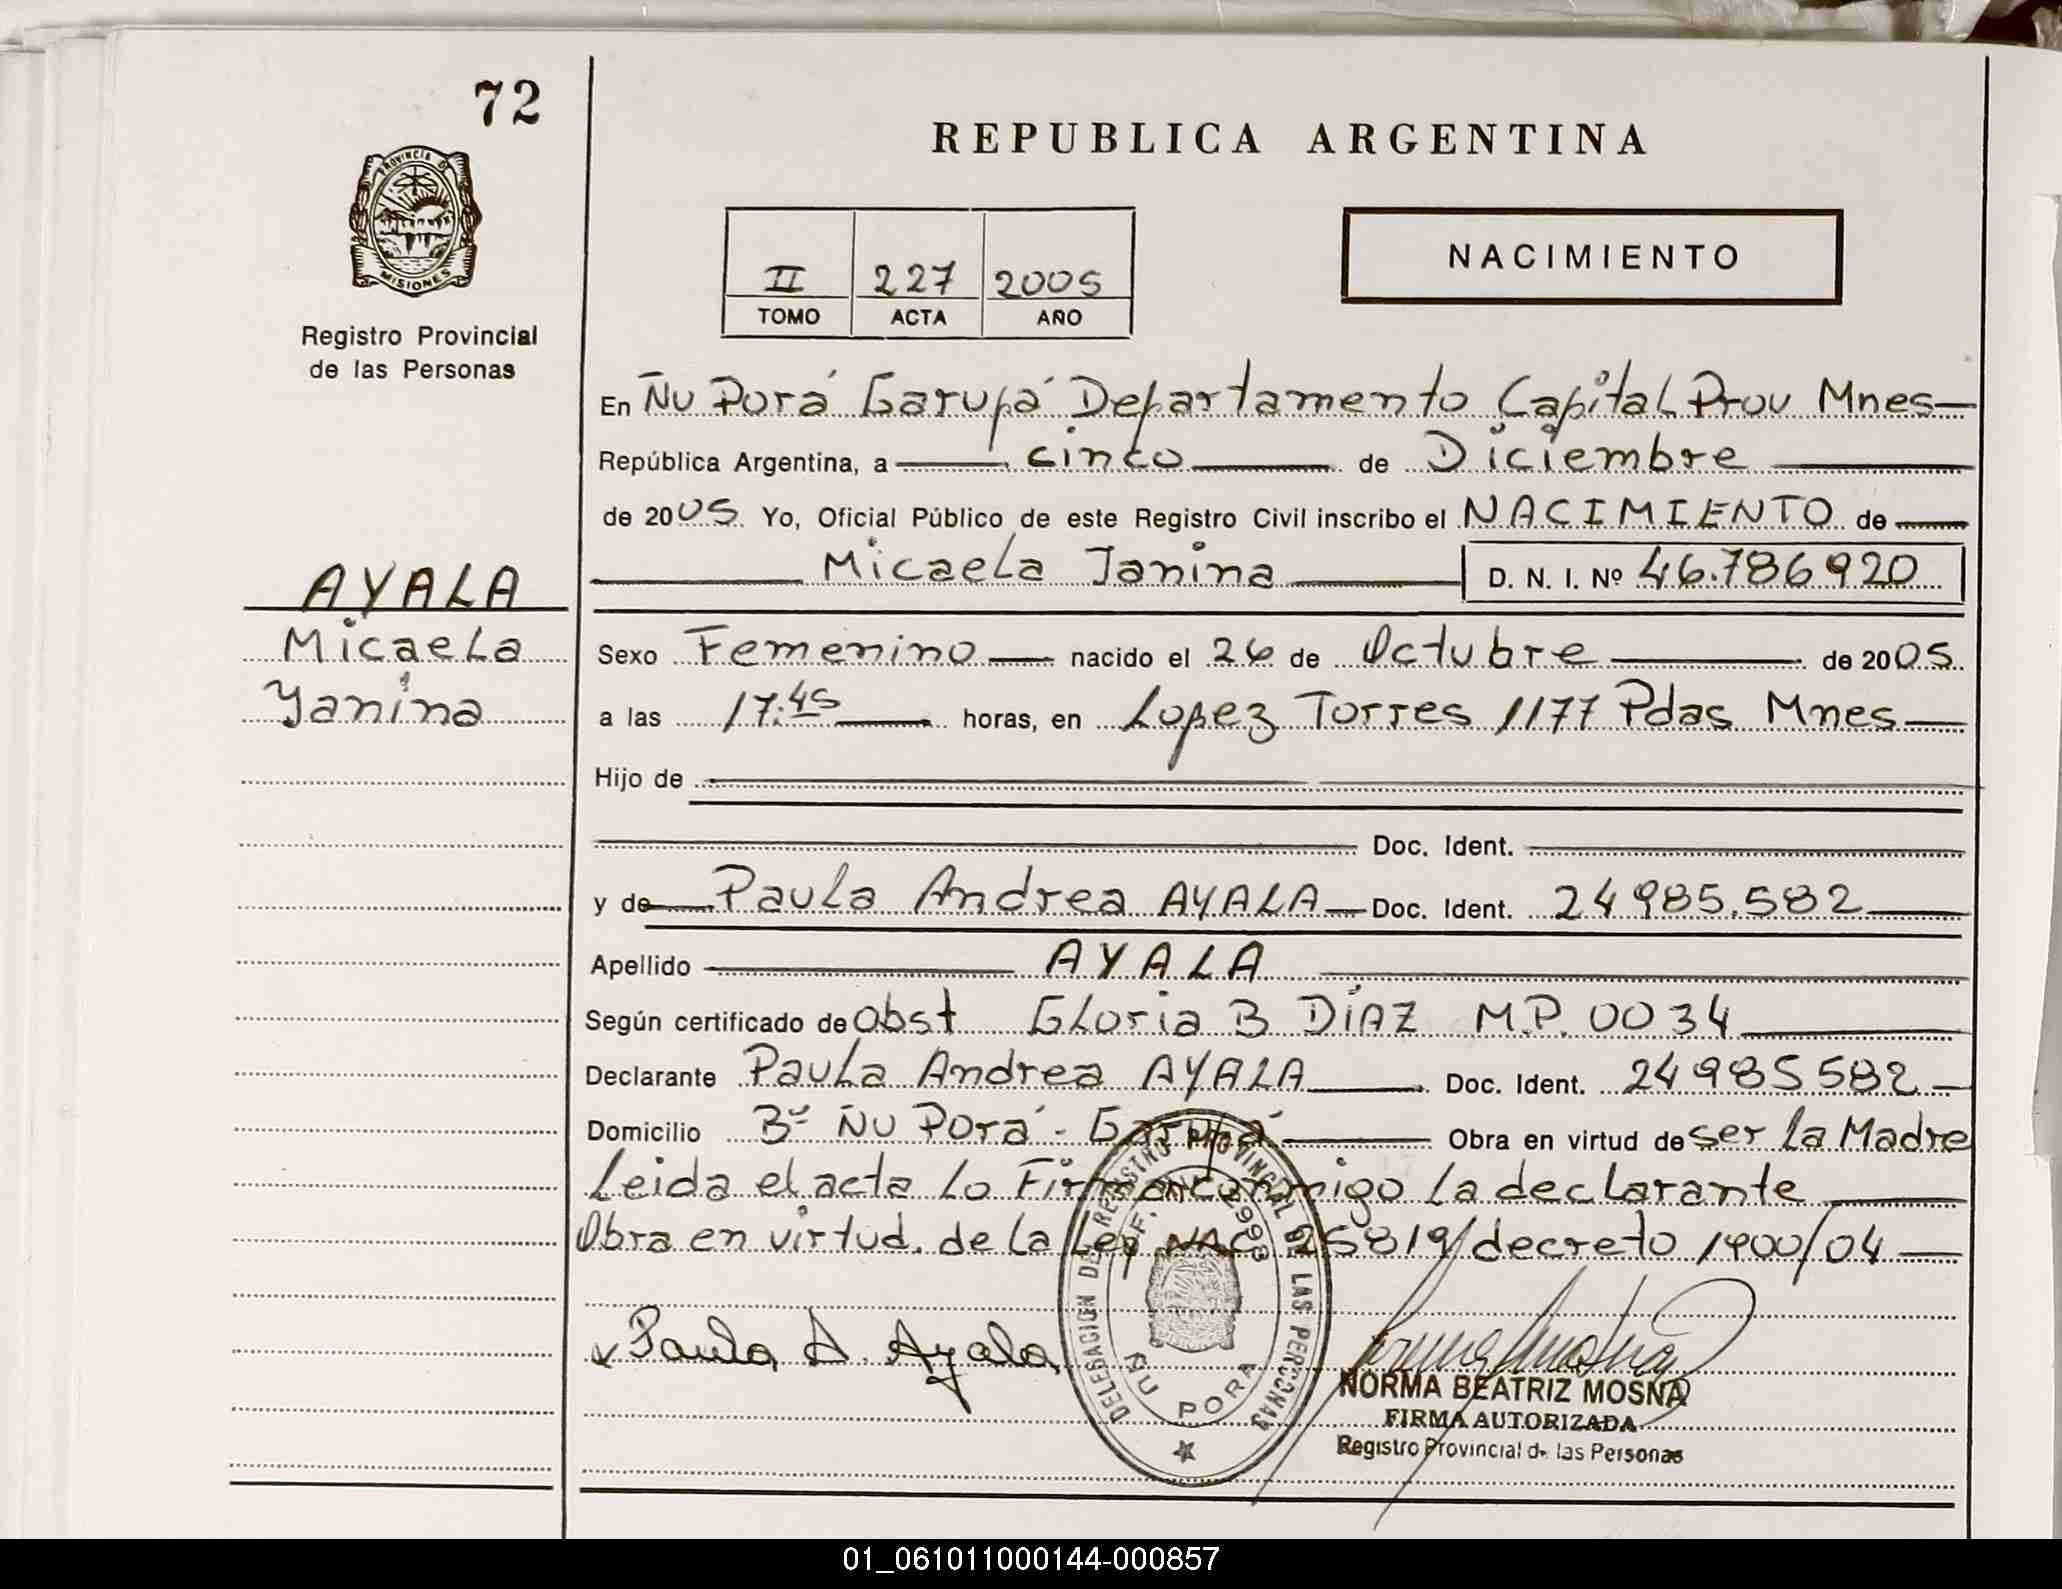 72
PROVINCIA DE
MISIONES
Registro Provincial
de las Personas
AYALA
Micaela
Yanina
REPUBLICA ARGENTINA
II 227 2005
TOMO ACTA AÑO
NACIMIENTO
En Ñu Porá Garupá Departamento Capital Prov Mnes
República Argentina, a cinco de Diciembre
de 2005 Yo, Oficial Público de este Registro Civil inscribo el NACIMIENTO de
Micaela Janina D. N. I. Nº 46.786920
Sexo Femenino nacido el 26 de Octubre de 2005
a las 17:45 horas, en Lopez Torres 1177 Pdas Mnes
Hijo de
Doc. Ident.
y de Paula Andrea AYALA Doc. Ident. 24985.582
Apellido AYALA
Según certificado de Obst Gloria B DiAZ M.P. 0034
Declarante Paula Andrea AYALA Doc. Ident. 24985582
Domicilio Bº Ñu Porá - Garupá Obra en virtud de ser la Madre
Leida el acta lo Firman conmigo la declarante
Obra en virtud. de la Ley NAC 25819/decreto 1900/04
Paula A. Ayala
DELEGACION DE REGISTRO PROVINCIAL DE LAS PERSONAS
2993
ÑU PORA
NORMA BEATRIZ MOSNA
FIRMA AUTORIZADA
Registro Provincial de las Personas
01_061011000144-000857